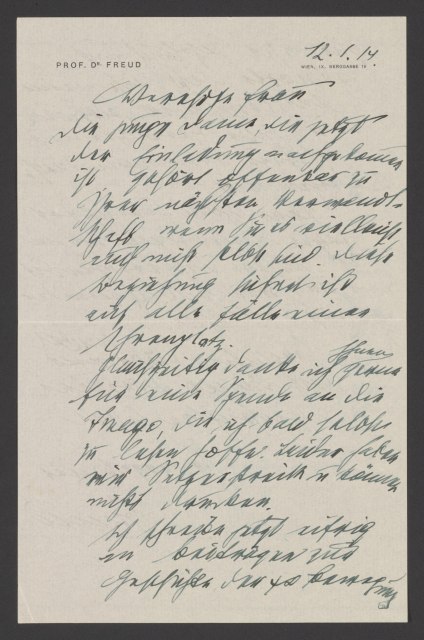 12.1.14
PROF. Dr. FREUD
WIEN, IX. BERGGASSE 19.
Verehrte Frau
Die junge Dame, die jetzt
der Einladung nachgekommen
ist gehört offenbar zu
Ihrer nächsten Verwandt-
schaft, wenn Sie es vielleicht
auch nicht selbst sind. Diese
Beziehung sichert ihr
auf alle Fälle einen
Ehrenplatz.
Gleichzeitig danke ich Ihnen
für eine Spende an die
Imago, die ich bald selbst
zu lesen hoffe. Leider haben
wir Setzerstreik u können
nichts drucken.
Ich schreibe jetzt eifrig
an Beiträgen zur
Geschichte der ψα Bewegung